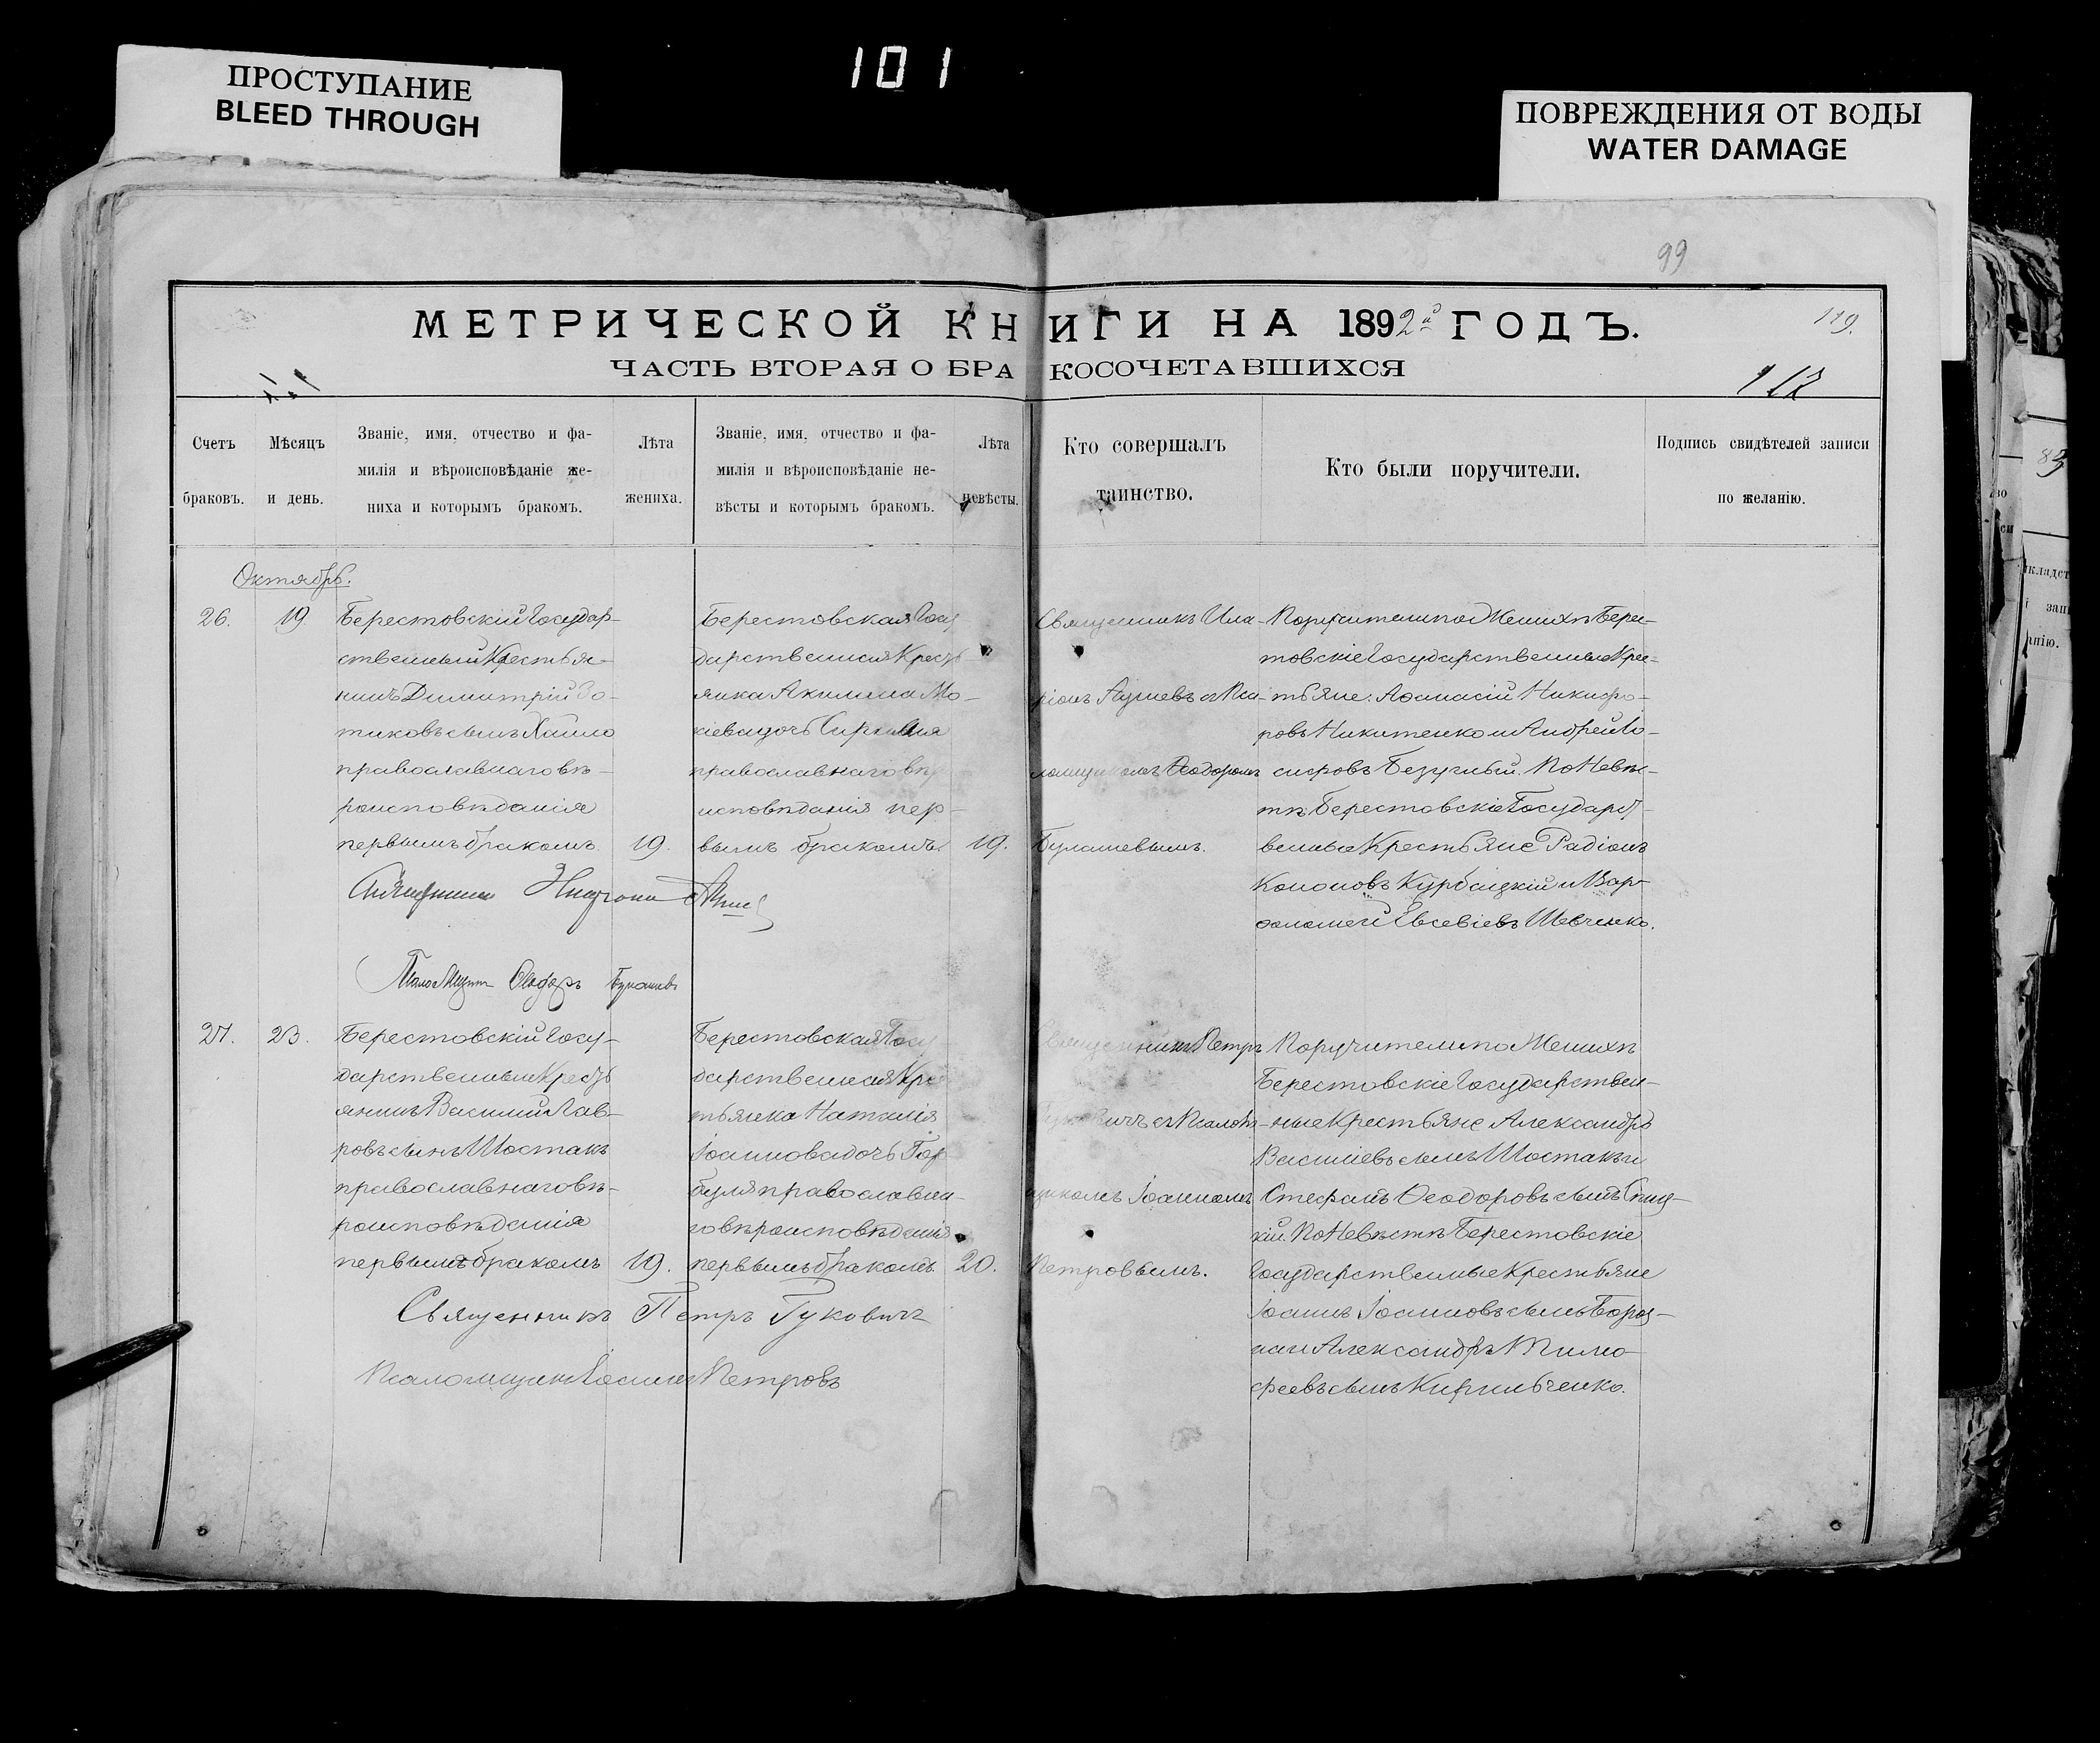 ПРОСТУПАНИЕ
BLEED THROUGH
101
ПОВРЕЖДЕНИЯ ОТ ВОДЫ
WATER DAMAGE
99
МЕТРИЧЕСКОЙ КНИГИ НА 1892й ГОДЪ.
119.
ЧАСТЬ ВТОРАЯ О БРАКОСОЧЕТАВШИХСЯ
112
Счетъ
браковъ.
Мѣсяцъ
и день.
Званіе, имя, отчество и фа-
милія и вѣроисповѣданіе же-
ниха и которымъ бракомъ.
Лѣта
жениха.
Званіе, имя, отчество и фа-
милія и вѣроисповѣданіе не-
вѣсты и которымъ бракомъ.
Лѣта
невѣсты.
Кто совершалъ
таинство.
Кто были поручители.
Подпись свидѣтелей записи
по желанію.
Октябрь.
26.
19.
Берестовскій Государ-
ственный Крестья-
нинъ Димитрій
тиковъ сынъ
православнаго вѣ-
роисповѣданія
первымъ бракомъ
19.
Берестовская Госу
дарственная Кресть-
янка Акилина Мо-
кіева дочь
православнаго вѣ
исповѣданія пер-
вымъ бракомъ
19.
Священникъ Ила-
ріонъ съ Пса-
ломщикомъ Ѳеодоромъ
Булашевымъ.
Поручители по Женихѣ Берес-
товскіе Государственные Крес-
тьяне: Аѳанасій Никифо-
ровъ Никитенко и Андрей Ло-
сифовъ Безуглый. По Невѣс-
тѣ Берестовскіе Государст-
венные Крестьяне Радіонъ
Кононовъ Курбацкій и Вар-
ѳоломей Евсевіевъ Шевченко.
Псаломщикъ Ѳеодоръ Булашевъ
27.
23.
Берестовскій Госу-
дарственный Кресть
янинъ Василий Лав-
ровъ сынъ Шостакъ
православнаго вѣ-
роисповѣданія
первымъ бракомъ
19.
Берестовская Госу
дарственная Крес
тьянка Наталія
Іоаннова дочь Гор
буля православна-
го вѣроисповѣданія
первымъ бракомъ
20.
Священникъ Петръ
Гуковичъ съ Псалом-
щикомъ Іоанномъ
Петровымъ.
Поручители по Женихѣ
Берестовскіе Государствен-
ные Крестьяне Александръ
Василіевъ сынъ Шостакъ и
Стефанъ Ѳеодоровъ сынъ
кій. По Невѣстѣ Берестовскіе
Государственные Крестьяне
Іоаннъ Іоанновъ сынъ
на и Александръ Тимо-
феевъ сынъ Кирильченко.
Священникъ Петръ Гуковичъ
Псаломщикъ Іоаннъ Петровъ